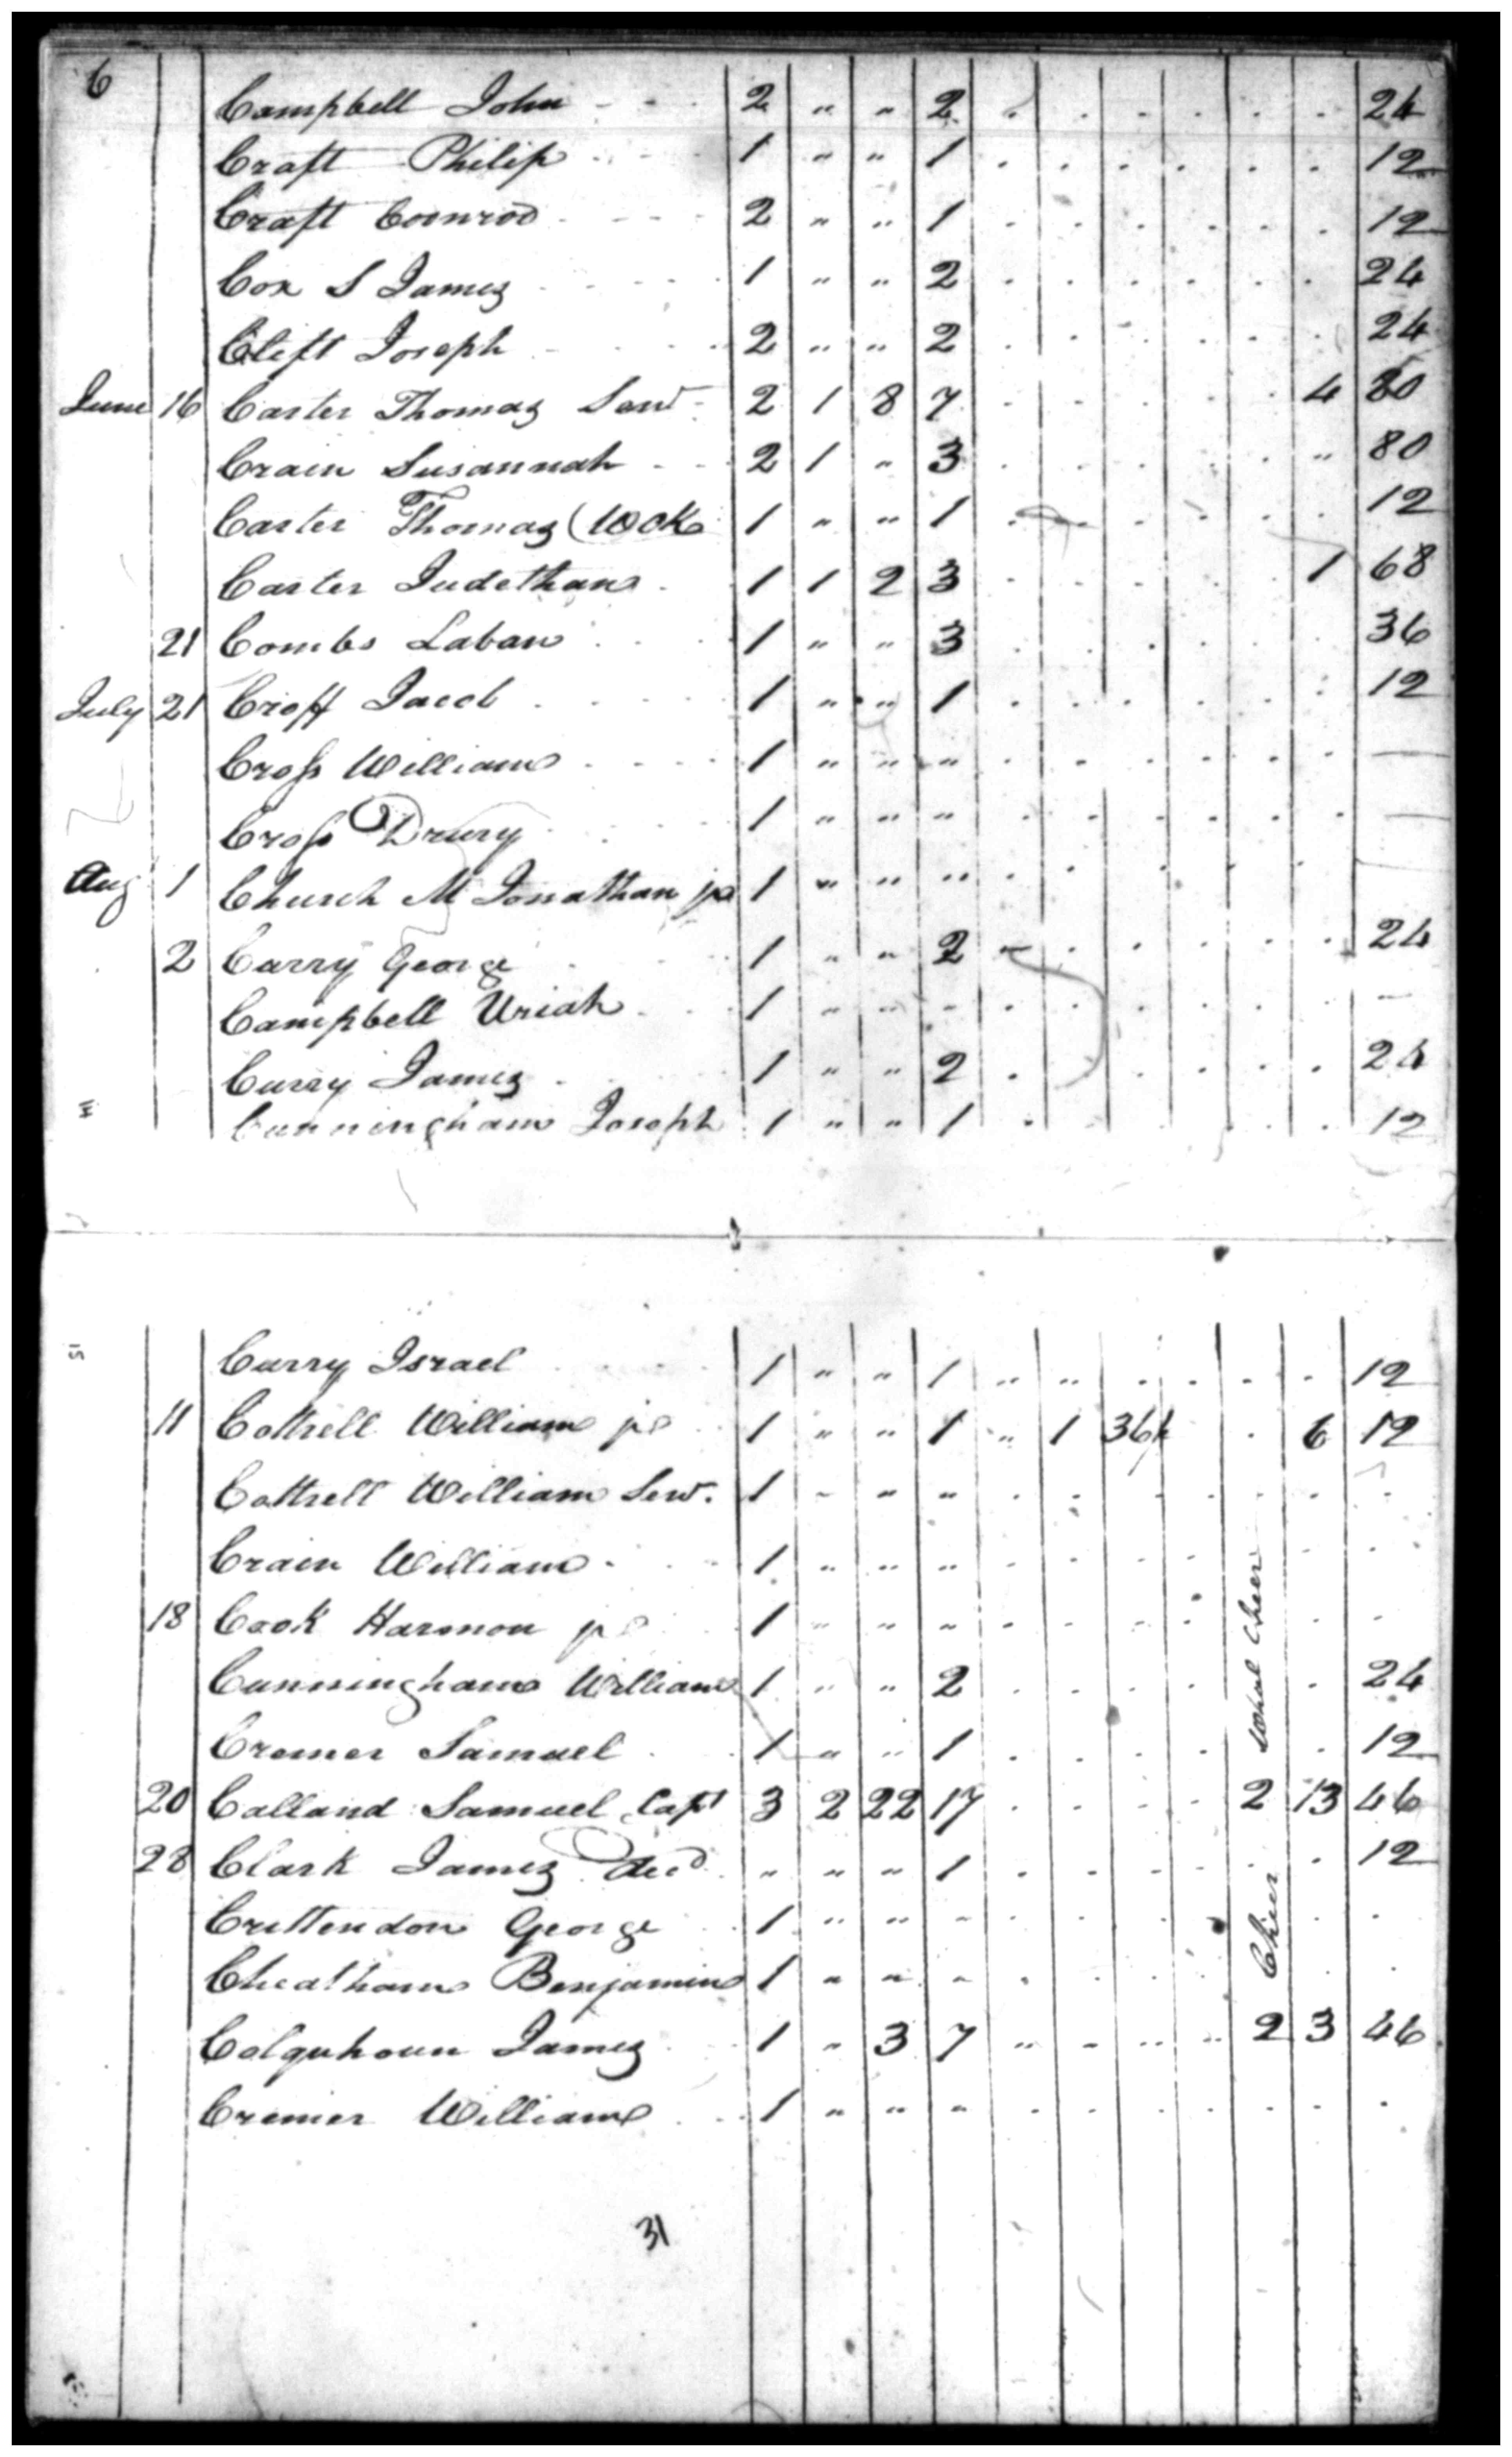 6
Campbell John 2 " " 2 24
Craft Philip 1 " " 1 12
Craft Coonrod 2 " " 1 12
Cox S James 1 " " 2 24
Clift Joseph 2 " " 2 24
June 16 Carter Thomas Senr 2 1 8 7 4 80
Crain Susannah 2 1 " 3 " 80
Carter Thomas (WOK 1 " " 1 12
Carter Judethan 1 1 2 3 1 68
21 Combs Laban 1 " " 3 36
July 21 Croff Jacob 1 " " 1 12
Cross William 1 " " " —
Cross Drury 1 " " " —
Aug 1 Church M Jonathan jr 1 " " "
2 Carry George 1 " " 2 24
Campbell Uriah 1 " " " —
Curry James 1 " " 2 24
Cunningham Joseph 1 " " 1 12
Curry Israel 1 " " 1 " " 12
11 Cottrell William jr 1 " " 1 " 1 36 6 12
Cottrell William Senr. 1 " " "
Crain William 1 " " "
18 Cook Harmon jr 1 " " "
Cunningham William 1 " " 2 24
Cremer Samuel 1 " " 1 12
20 Calland Samuel Capt 3 2 22 17 2 13 46
28 Clark James decd " " " 1 12
Crittendon George 1 " " "
Cheatham Benjamin 1 " " "
Colquhoun James 1 " 3 7 " " " " 2 3 46
Cremer William 1 " " "
Cheer
31